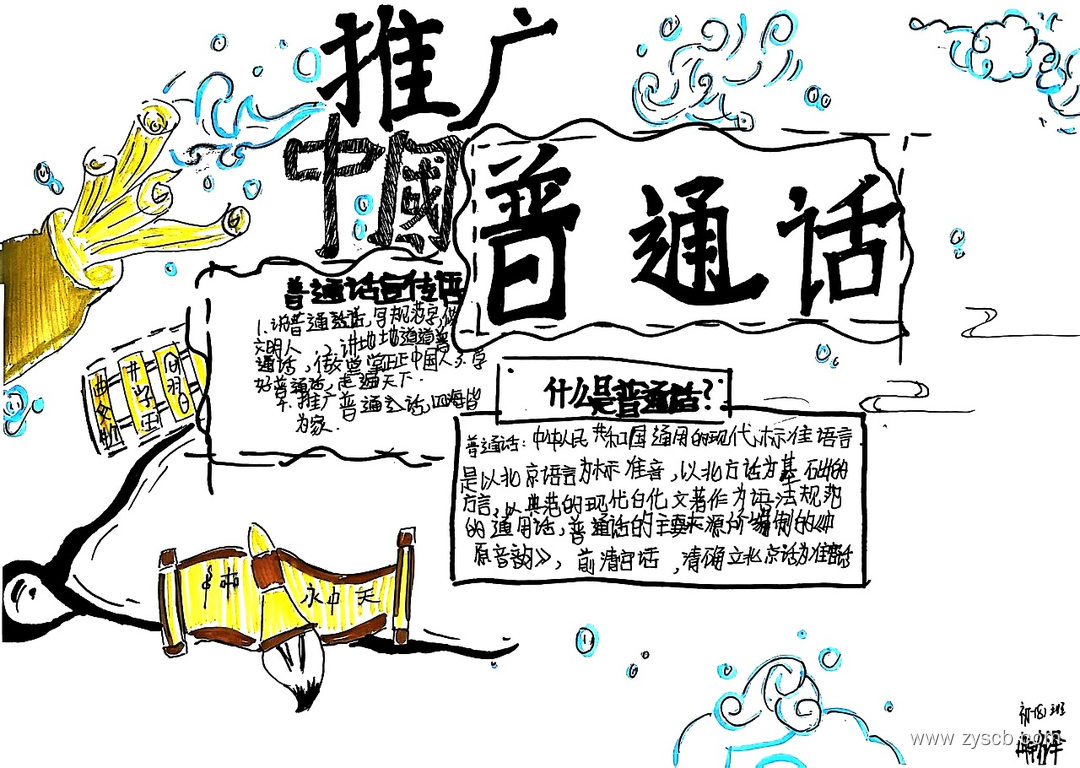 推广
中國
普通话
普通话宣传语
1.讲普通话,写规范字,做
文明人 2.讲地地道道普
通话,做堂堂正正中国人 3.学
好普通话,走遍天下.
4.推广普通话,四海皆
为家.
什么是普通话?
普通话:中华人民共和国通用的现代标准语言
是以北京语言为标准音,以北方话为基础的
方言,以典范的现代白化文著作为语法规范
的通用话,普通话的主要来源前编制的《中
原音韵》,前清官话,清确立北京话为准官话
永中天
www.zyscb.com